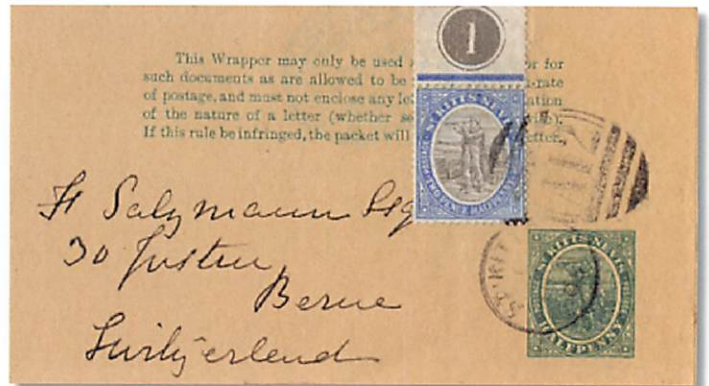 This Wrapper may only be used or for
such documents as are allowed to be -rate
of postage, and must not enclose any le ation
of the nature of a letter (whether se
If this rule be infringed, the packet will etter.
1
ST KITTS NEVIS
TWO PENCE HALFPENNY
A12
H Salzmann Esq
30
Berne
Switzerland
ST. KIT
ST KITTS NEVIS
HALFPENNY